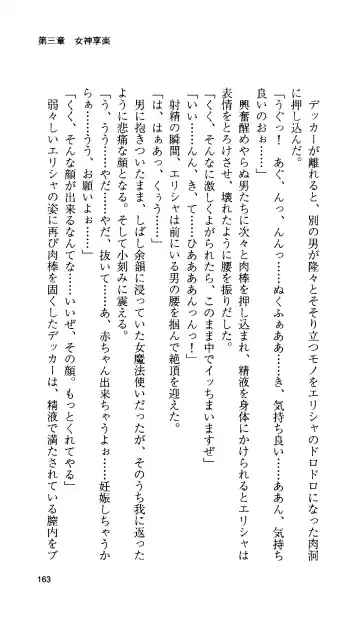 第三章　女神享楽
デッカーが離れると、別の男が隆々とそそり立つモノをエリシャのドロドロになった肉洞
に押し込んだ。
「うぐっ！　あぐ、んっ、んんっ……ぬくふぁああ……き、気持ち良い……ああん、気持ち
良いのぉぉ……」
興奮醒めやらぬ男たちに次々と肉棒を押し込まれ、精液を身体にかけられるとエリシャは
表情をとろけさせ、壊れたように腰を振りだした。
「くく、そんなに激しくよがられたら、このまま中でイッちまいますぜ」
「いい……んん、き、て……ひああああんっんっ！」
射精の瞬間、エリシャは前にいる男の腰を掴んで絶頂を迎えた。
「は、はぁあっ、くぅう……」
男に抱きついたまま、しばし余韻に浸っていた女魔法使いだったが、そのうち我に返った
ように悲痛な顔となる。そして小刻みに震える。
「う、うう……やだ……やだ、抜いて……あ、赤ちゃん出来ちゃうよぉ……妊娠しちゃうか
らぁ……うう、お願いよぉ……」
「くく、そんな顔が出来るなんてな……いいぜ、その顔。もっとくれてやる」
弱々しいエリシャの姿に再び肉棒を固くしたデッカーは、精液で満たされている膣内をブ
163